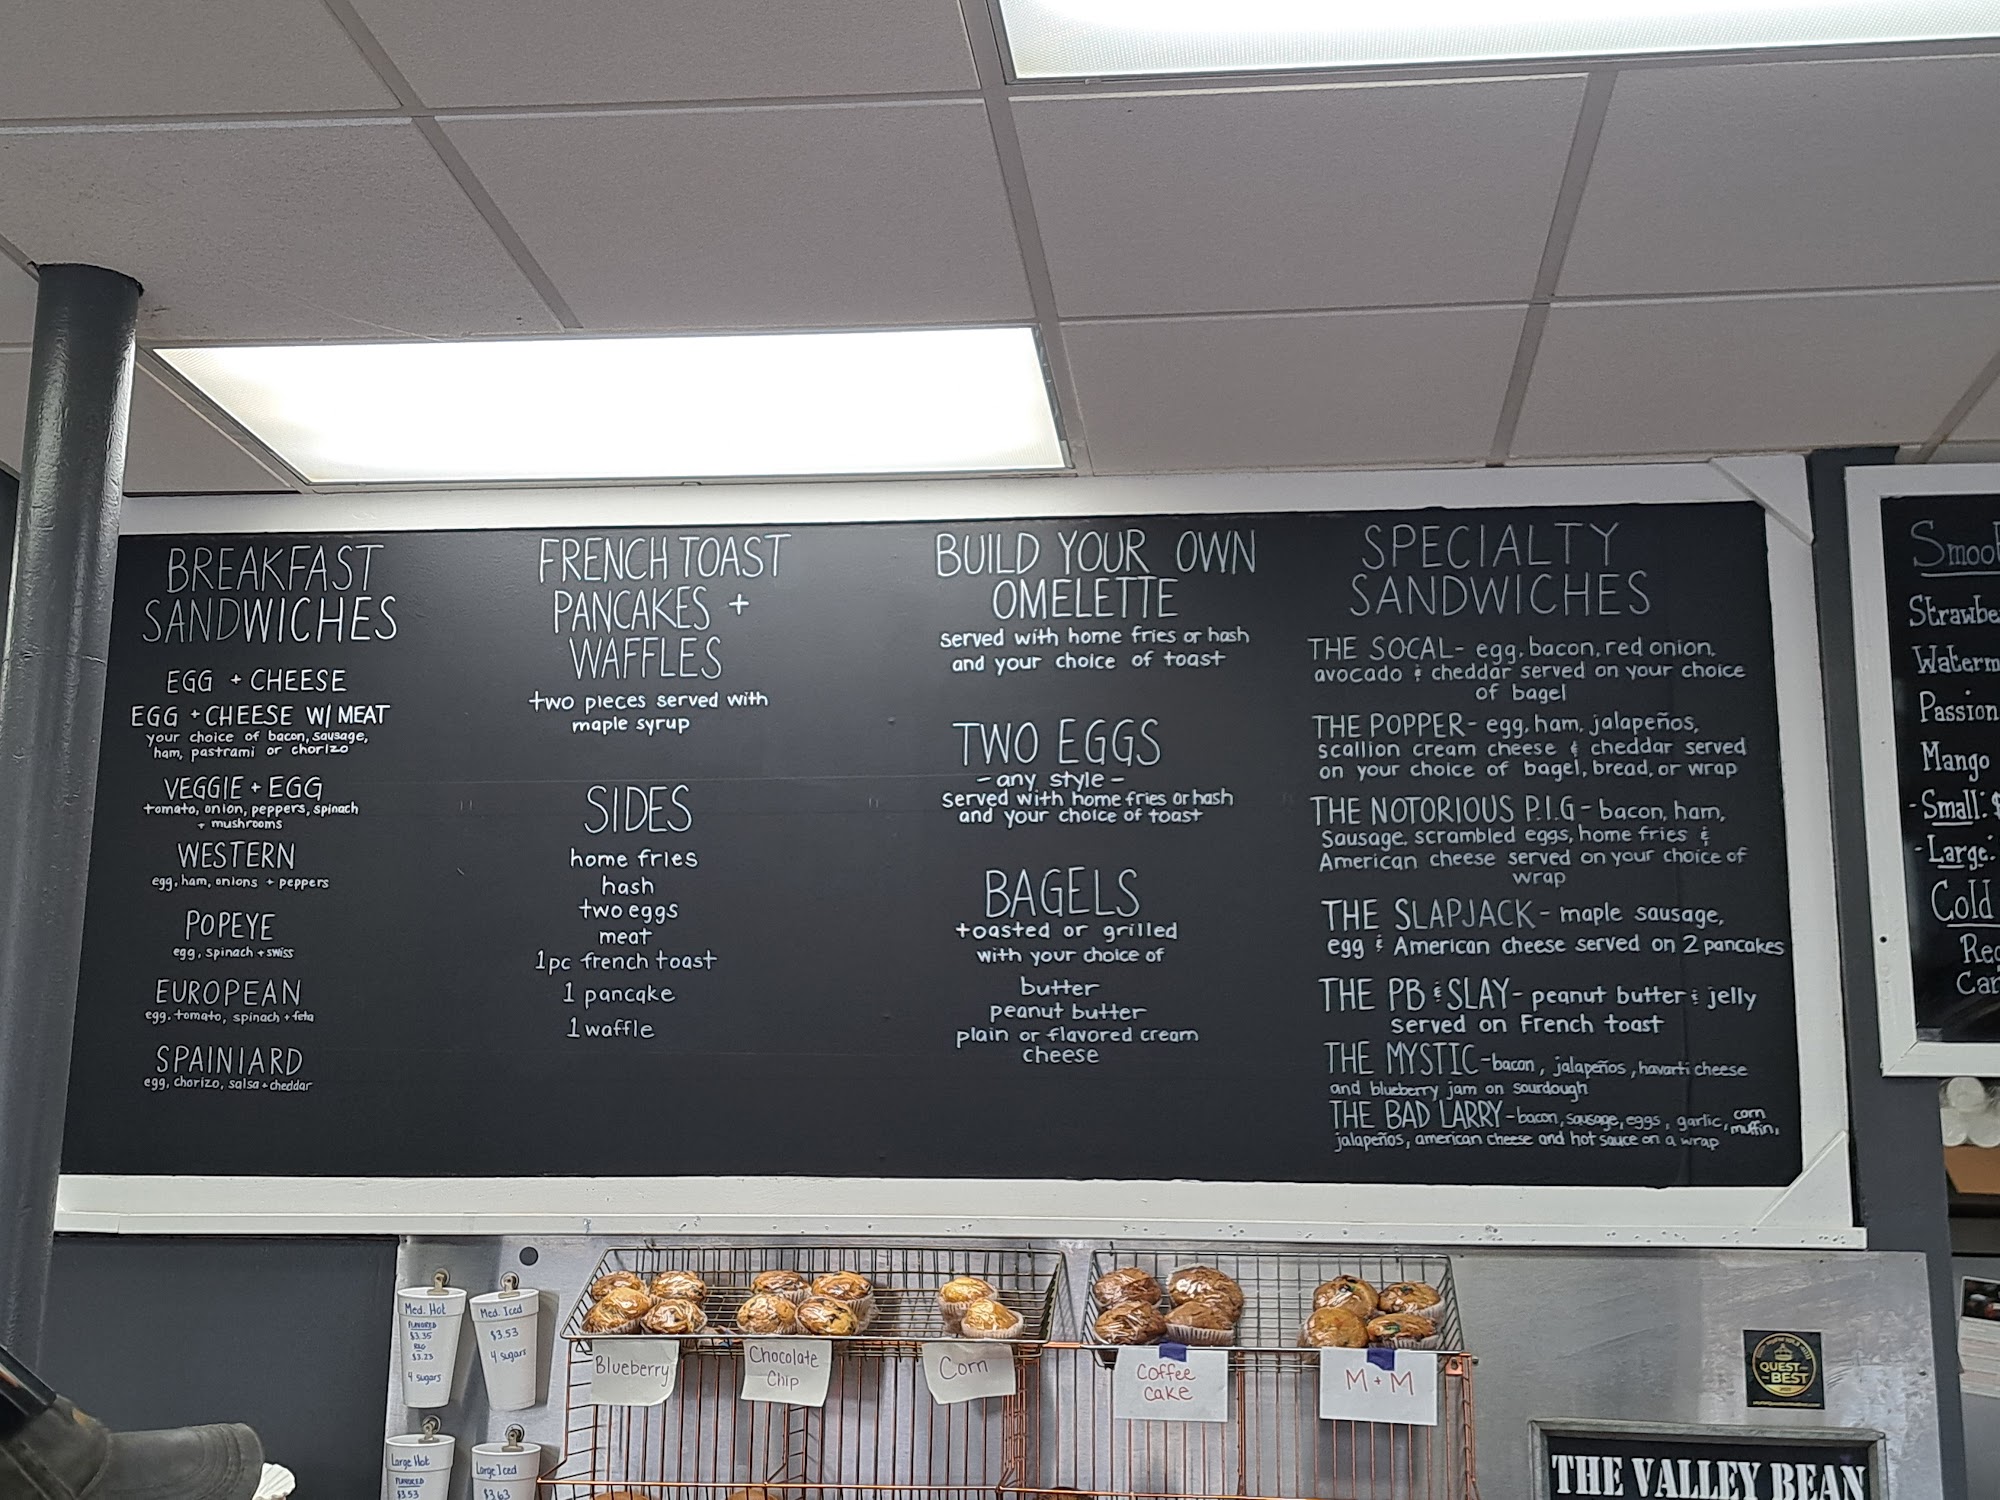 BREAKFAST
SANDWICHES
EGG + CHEESE
EGG + CHEESE W/ MEAT
your choice of bacon, sausage,
ham, pastrami or chorizo
VEGGIE + EGG
tomato, onion, peppers, spinach
+ mushrooms
WESTERN
egg, ham, onions + peppers
POPEYE
egg, spinach + swiss
EUROPEAN
egg. tomato, spinach + feta
SPAINIARD
egg, chorizo, salsa + cheddar
FRENCH TOAST
PANCAKES +
WAFFLES
two pieces served with
maple syrup
SIDES
home fries
hash
two eggs
meat
1pc french toast
1 pancake
1 waffle
BUILD YOUR OWN
OMELETTE
served with home fries or hash
and your choice of toast
TWO EGGS
- any style -
served with home fries or hash
and your choice of toast
BAGELS
toasted or grilled
with your choice of
butter
peanut butter
plain or flavored cream
cheese
SPECIALTY
SANDWICHES
THE SOCAL- egg, bacon, red onion,
avocado & cheddar served on your choice
of bagel
THE POPPER- egg, ham, jalapeños,
scallion cream cheese & cheddar served
on your choice of bagel, bread, or wrap
THE NOTORIOUS P.I.G - bacon, ham,
Sausage, scrambled eggs, home fries &
American cheese served on your choice of
wrap
THE SLAPJACK - maple sausage,
egg & American cheese served on 2 pancakes
THE PB & SLAY- peanut butter & jelly
served on French toast
THE MYSTIC - bacon, jalapeños, havarti cheese
and blueberry jam on sourdough
THE BAD LARRY - bacon, sausage, eggs, garlic, corn muffin,
jalapeños, american cheese and hot sauce on a wrap
Smoo
Strawbe
Waterm
Passion
Mango
- Small: $
- Large:
Cold
Re
Car
Med. Hot
FLAVORED
$3.35
REG
$3.23
4 sugars
Med. Iced
$3.53
4 sugars
Large Hot
FLAVORED
$3.53
Large Iced
$3.63
Blueberry
Chocolate
Chip
Corn
Coffee
cake
M + M
QUEST
BEST
THE VALLEY BEAN